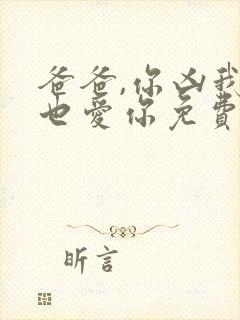 爸爸,你凶我
也爱你免费
昕言